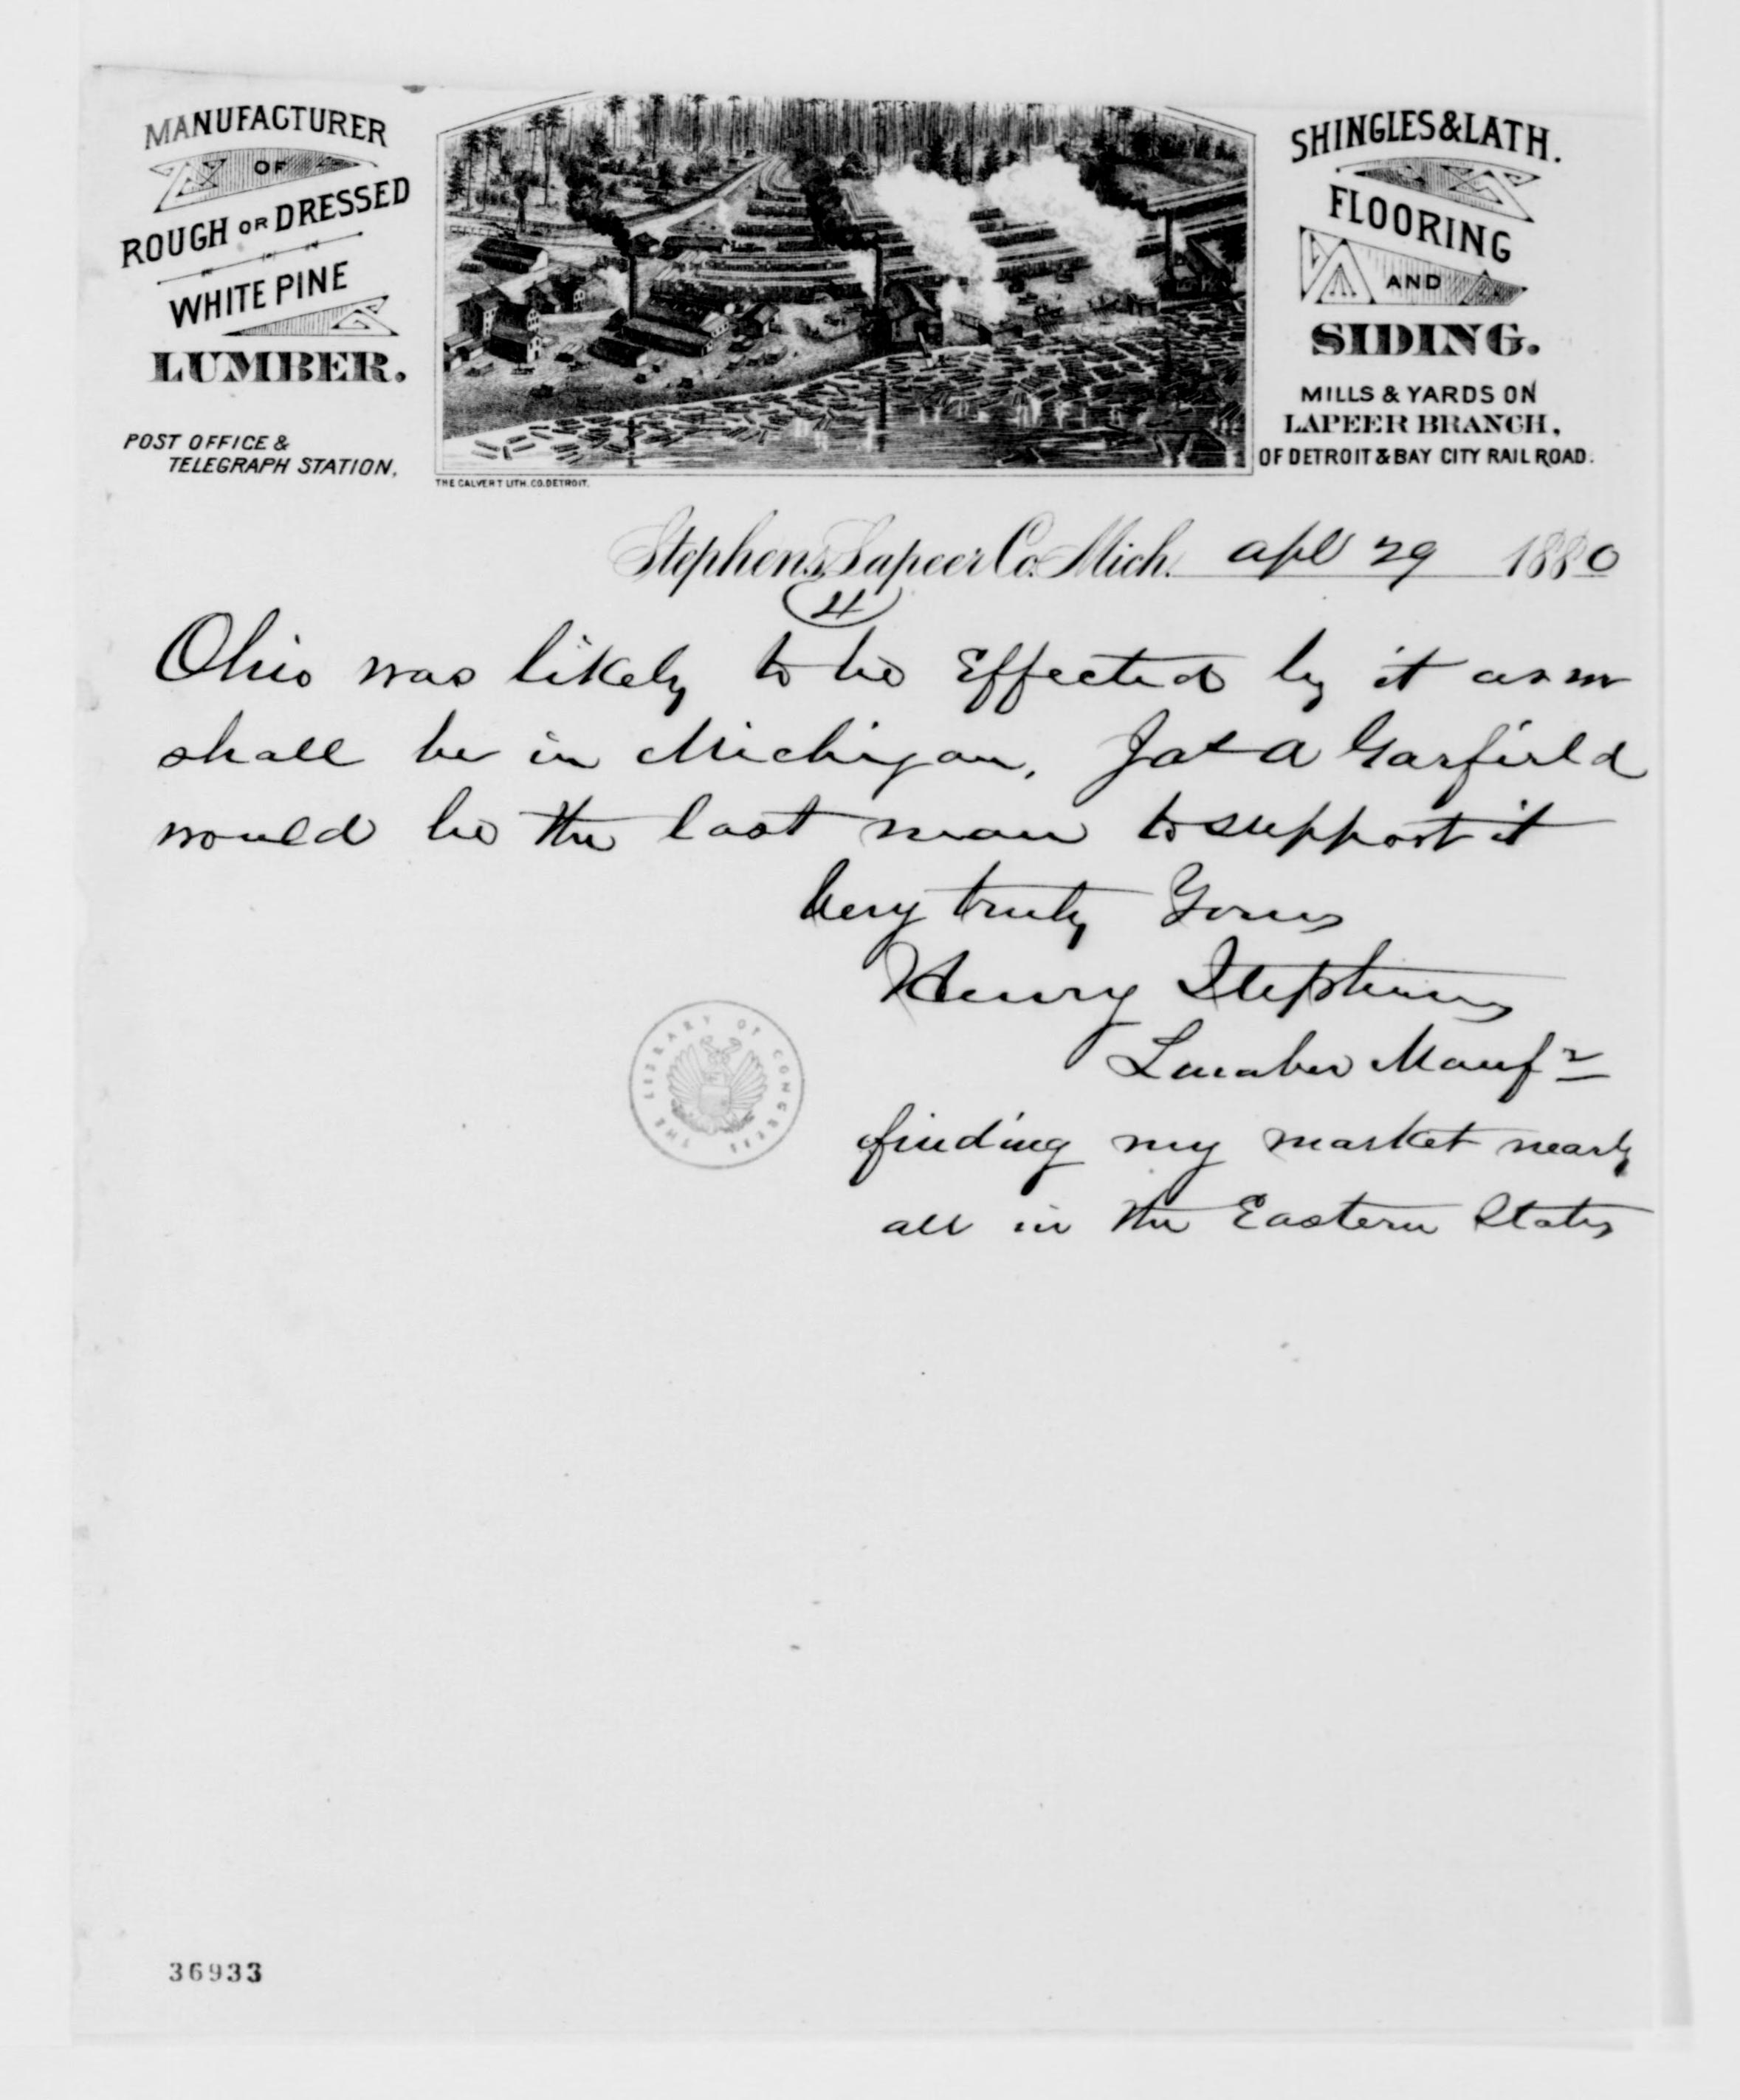 MANUFACTURER
OF
ROUGH OR DRESSED
WHITE PINE
LUMBER.
POST OFFICE &
TELEGRAPH STATION,
THE CALVERT LITH. CO. DETROIT.
SHINGLES & LATH.
FLOORING
AND
SIDING.
MILLS & YARDS ON
LAPEER BRANCH,
OF DETROIT & BAY CITY RAIL ROAD.
Stephens, Lapeer Co. Mich. apl 29 1880
4
Ohio was likely to be Effected by it as we
shall be in Michigan, Jas A Garfield
would be the last man to support it
Very truly Yours
Henry Stephens
Lumber Manfr
finding my market nearly
all in the Eastern States
THE LIBRARY OF CONGRESS
36933